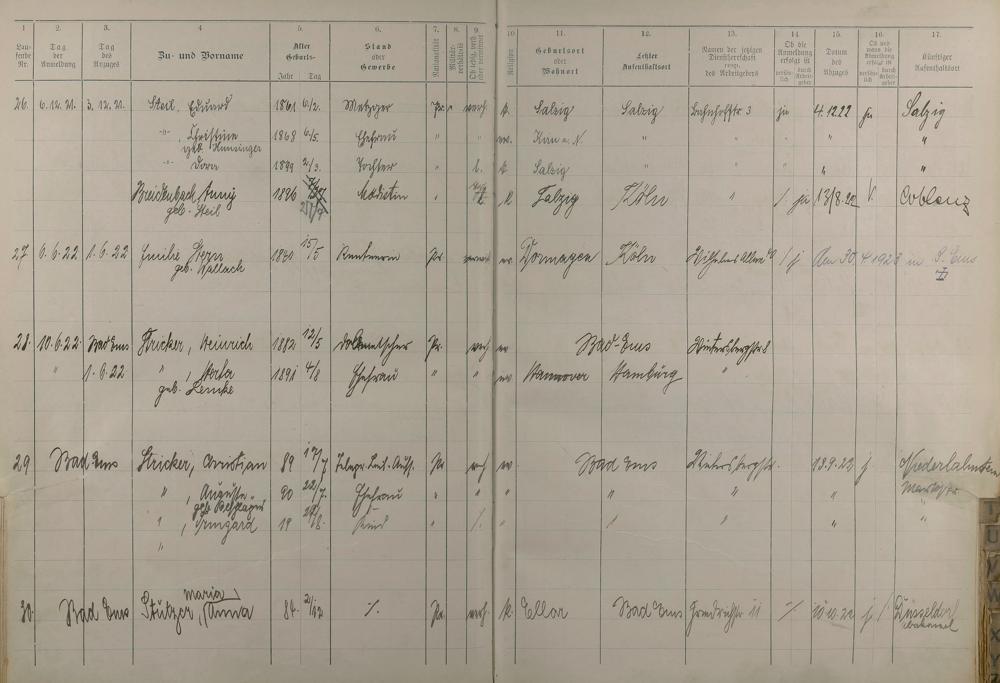 1 2. 3. 4 5. 6. 7. 8. 9. 10. 11. 12. 13. 14. 15. 16. 17.
Laufende Nr. Tag der Anmeldung Tag des Anzuges Zu- und Vorname Alter Geburts- Jahr Tag Stand oder Gewerbe Nationalität Militärverhältnis Ob ledig, verh. oder verwitwet Religion Geburtsort oder Wohnort Letzter Aufenthaltsort Namen der jetzigen Dienstherrschaft resp. des Arbeitgebers Ob die Anmeldung erfolgt ist persönlich durch Arbeitgeber Datum des Abzuges Ob und wann die Anmeldung erfolgt ist persönlich durch Arbeitgeber Künftiger Aufenthaltsort
26. 6.12.21. 3.12.21. Steil, Eduard 1861 6/2. Metzger Pr. verh. k. Salzig Salzig Bahnhofstr 3 ja 4.12.22 ja Salzig
" , Christine 1868 6/5. Ehefrau " " " " "
geb. Hunsinger
" Dora 1899 2/3. Tochter " l. k Salzig " " " " "
Breidenbach, Anny 1896 Modistin " k. Salzig Köln " / ja 13/8.22 Coblenz
geb. Steil
27 6.6.22 1.6.22 Emilie Stern 1840 15/5 Rentnerin Pr. Dormagen Köln Wilhelms Allee / j Am 30 4 1923 in B. Ems
geb.
28. 10.6.22 Bad Ems Stricker, Heinrich 1882 12/5 Dolmetscher Pr. verh ev Bad Ems Wintersbergstr 8
" 1.6.22 " , Herta 1891 4/8 Ehefrau " " ev Hannover Hamburg "
geb. Lemke
29 Bad Ems Stricker, Christian 89 17/7 Pr verh ev. Bad Ems Wintersbergstr. 13.9.22 j. Niederlahnstein
" , Auguste 90 22/7. Ehefrau " " " " " " Marktstr
" , Irmgard 19 Kind " /. " " " " "
"
maria
30. Bad Ems Stützer, Anna 84 2/12 /. Pr. verh. k. Ellar Bad Ems 11 / 10.10.22 j / Düsseldorf
T U V W X Y Z